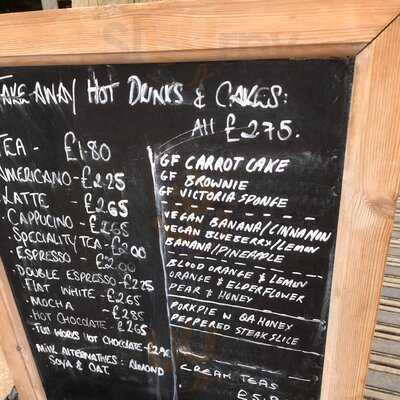 TAKE AWAY HOT DRINKS & CAKES:
All £2.75.
TEA - £1.80
AMERICANO - £2.25
LATTE - £2.65
CAPPUCINO - £2.65
SPECIALITY TEA - £2.00
ESPRESSO - £2.00
DOUBLE ESPRESSO - £2.25
FLAT WHITE - £2.65
MOCHA - £2.85
HOT CHOCOLATE - £2.65
FULL WORKS HOT CHOCOLATE - £2.90
MILK ALTERNATIVES: ALMOND
SOYA & OAT.
GF CARROT CAKE
GF BROWNIE
GF VICTORIA SPONGE
VEGAN BANANA/CINNAMON
VEGAN BLUEBERRY/LEMON
BANANA/PINEAPPLE
BLOOD ORANGE & LEMON
ORANGE & ELDERFLOWER
PEAR & HONEY
PORKPIE W BA HONEY
PEPPERED STEAK SLICE
CREAM TEAS